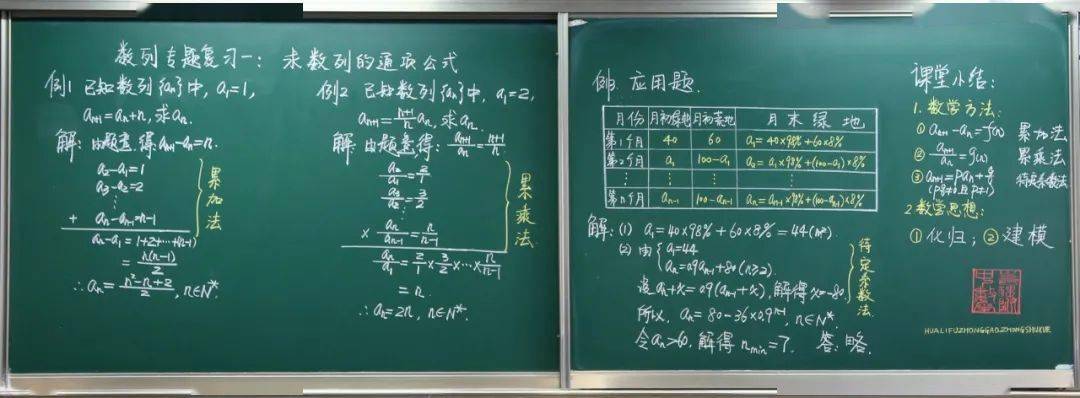 数列专题复习一：求数列的通项公式
例1 已知数列{aₙ}中，a₁=1，
aₙ₊₁=aₙ+n，求aₙ.
解：由题意，得aₙ₊₁-aₙ=n.
a₂-a₁=1
a₃-a₂=2
⋮
+ aₙ-aₙ₋₁=n-1
aₙ-a₁=1+2+…+(n-1)
=n(n-1)/2
∴aₙ=(n²-n+2)/2，n∈N*.
累加法
例2 已知数列{aₙ}中，a₁=2，
aₙ₊₁=(n+1)/n aₙ，求aₙ.
解：由题意得：aₙ₊₁/aₙ=(n+1)/n
a₂/a₁=2/1
a₃/a₂=3/2
⋮
× aₙ/aₙ₋₁=n/(n-1)
aₙ/a₁=2/1×3/2×…×n/(n-1)
=n.
∴aₙ=2n，n∈N*.
累乘法
例3 应用题
月份 月初绿地 月初荒地 月末绿地
第1个月 40 60 a₁=40×98%+60×8%
第2个月 a₁ 100-a₁ a₂=a₁×98%+(100-a₁)×8%
⋮ ⋮ ⋮ ⋮
第n个月 aₙ₋₁ 100-aₙ₋₁ aₙ=aₙ₋₁×98%+(100-aₙ₋₁)×8%
解：(1) a₁=40×98%+60×8%=44(m²).
(2) 由{a₁=44
aₙ=0.9aₙ₋₁+8(n≥2).
设aₙ+x=0.9(aₙ₋₁+x)，解得x=-80.
所以，aₙ=80-36×0.9ⁿ⁻¹，n∈N*.
令aₙ>60，解得nmin=7. 答：略.
待定系数法
课堂小结：
1.数学方法：
①aₙ₊₁-aₙ=f(n) 累加法
②aₙ₊₁/aₙ=g(n) 累乘法
③aₙ₊₁=paₙ+q 待定系数法
(pq≠0且p≠1)
2.数学思想：
①化归；②建模
HUALIFUZHONGGAOZHONGSHUXUE